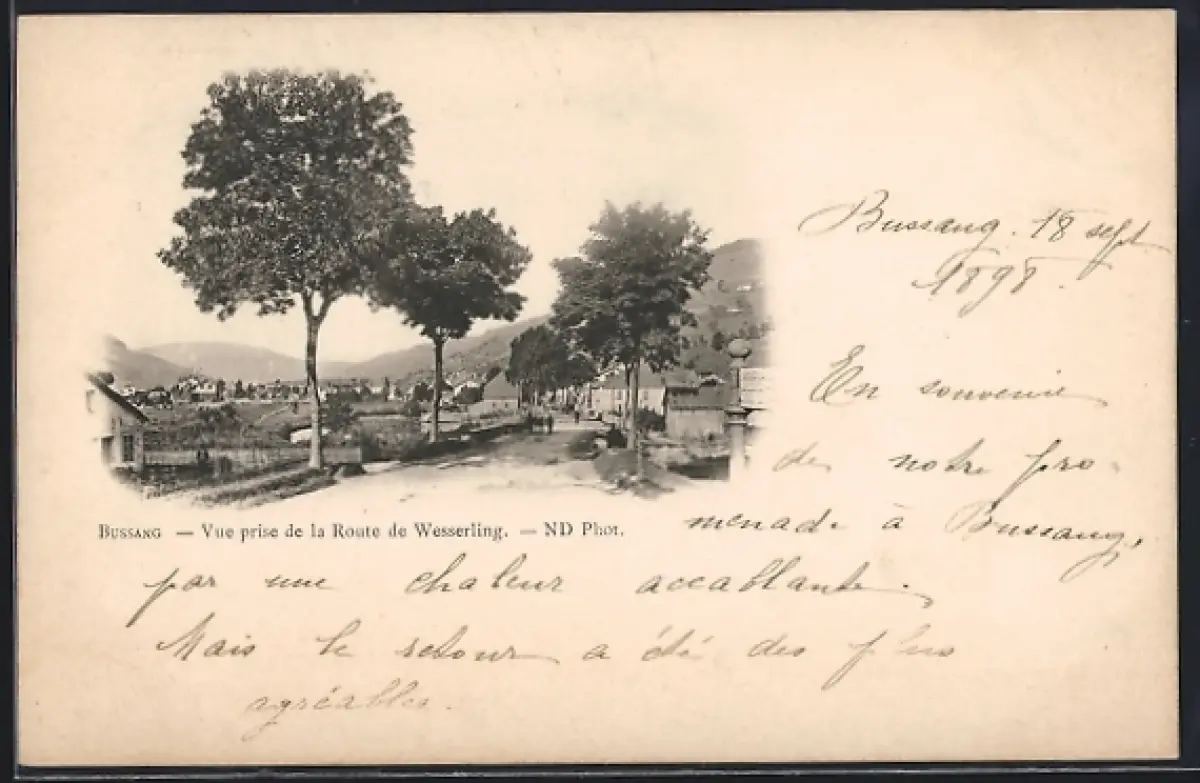 Bussang. 18 sept
1898.
En souvenir
de notre pro-
BUSSANG — Vue prise de la Route de Wesserling. — ND Phot.
menade à Bussang,
par une chaleur accablante.
Mais le retour a été des plus
agréables.